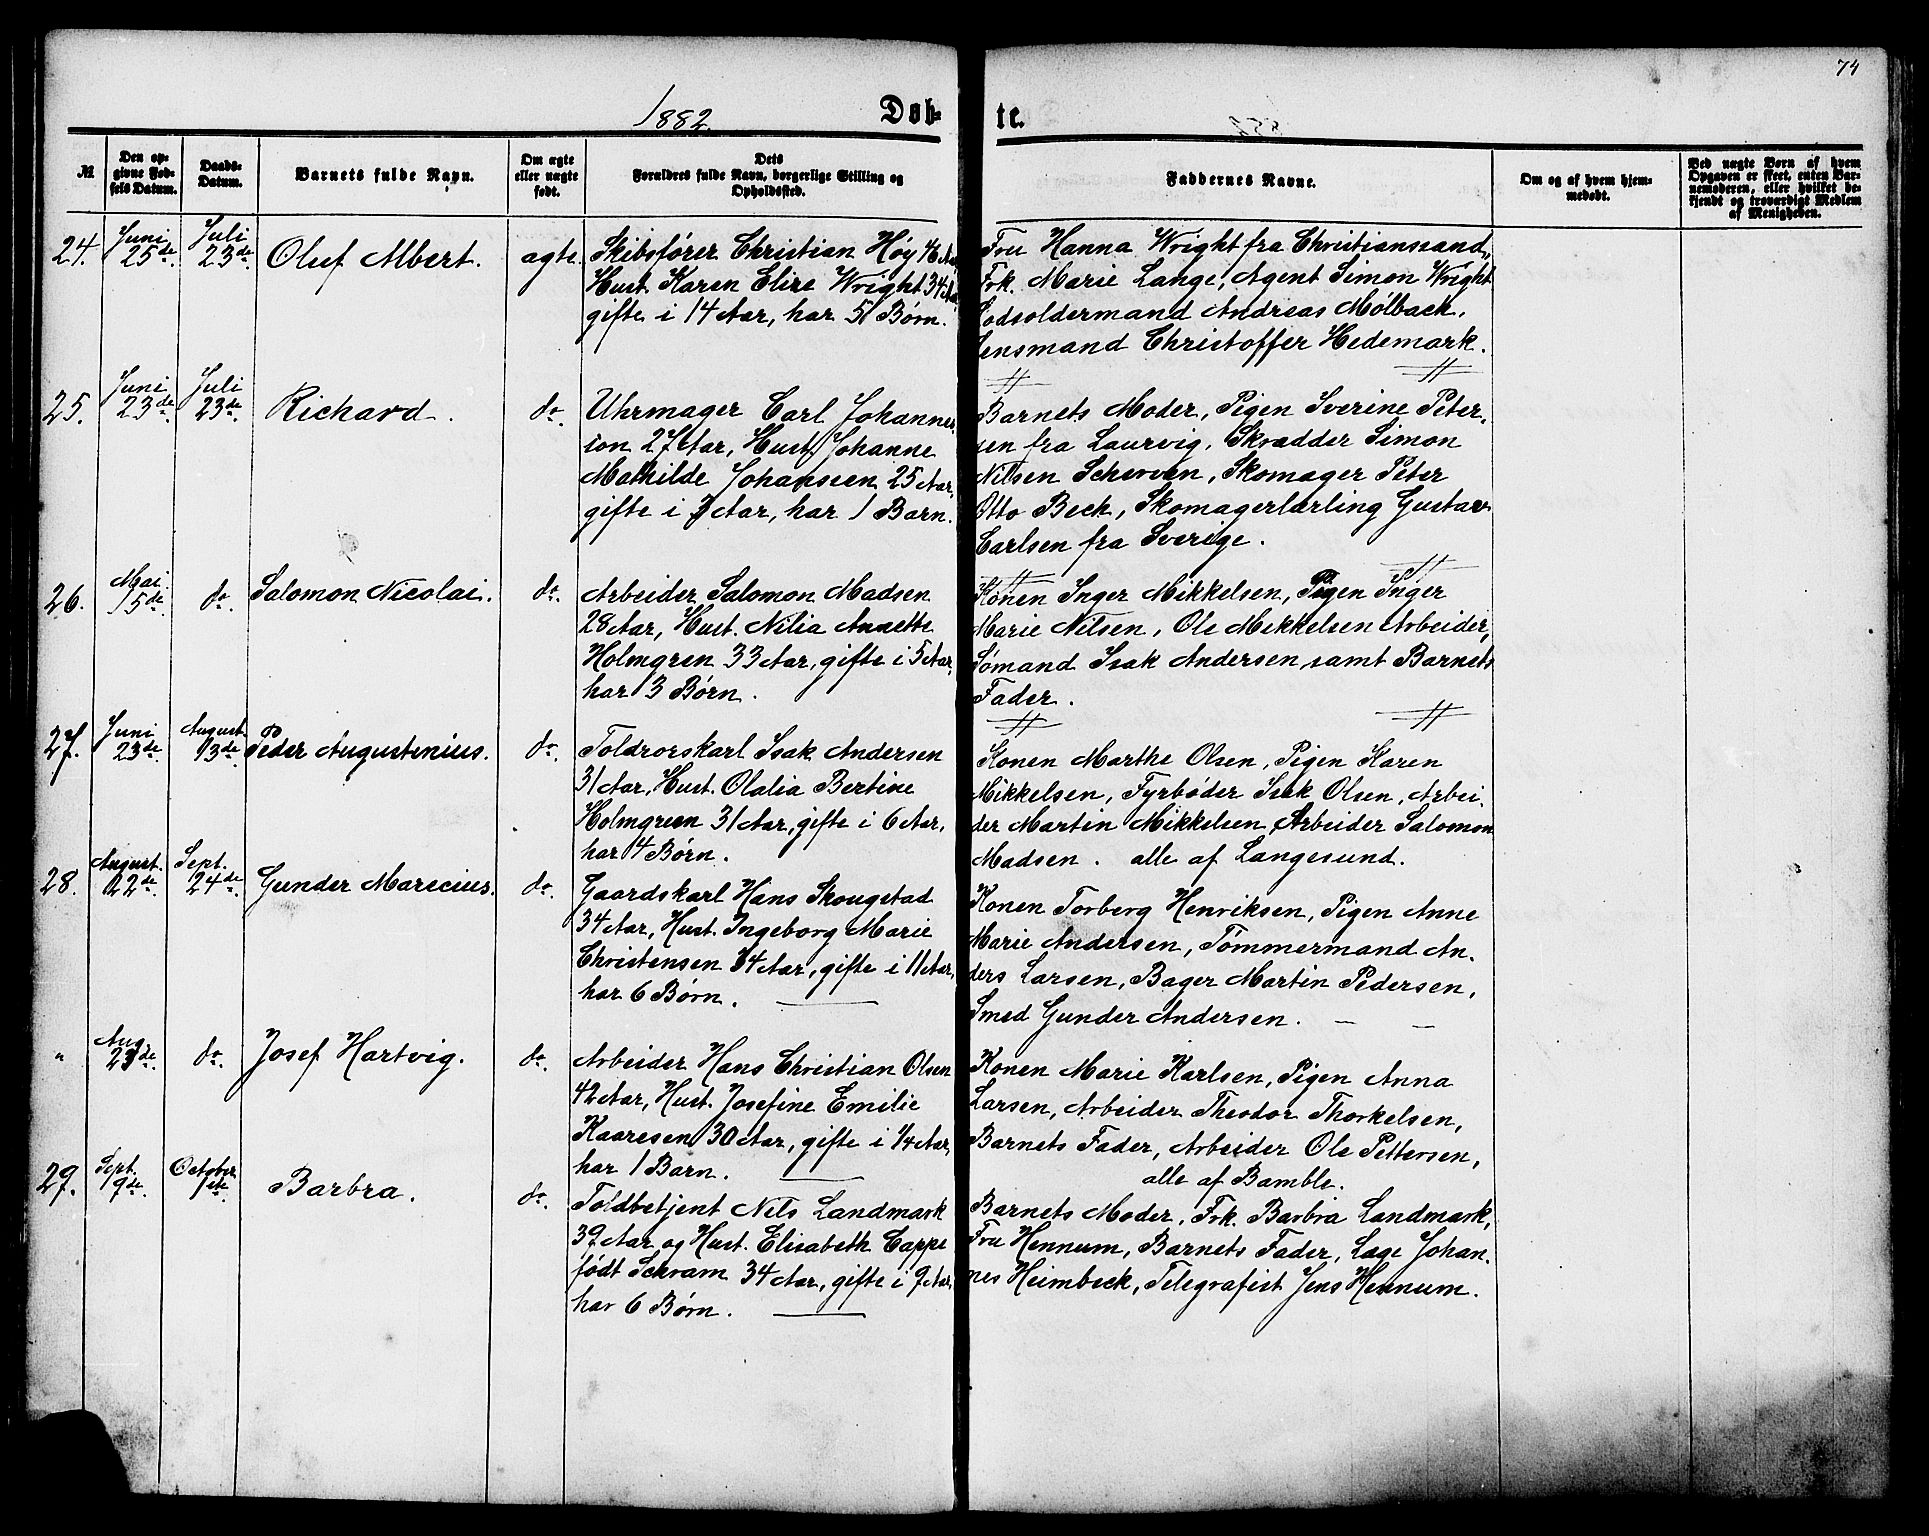 74
1882.
Døb-
te.
№
Den op-
givne Fød-
sels Datum.
Daabs-
Datum.
Barnets fulde Navn.
Om ægte
eller uægte
født.
Dets
Forældres fulde Navn, borgerlige Stilling og
Opholdssted.
Faddernes Navne.
Om og af hvem hjem-
medøbt.
Ved uægte Born af hvem
Opgaven er skeet, enten Bar-
nemoderen, eller hvilket be-
kjendt og troværdigt Medlem
af Menigheden.
24.
Juni
25de.
Juli
23de.
Oluf Albert.
ægte.
Skibsfører Christian Høy 46 Aar,
Hust. Karen Elise Wright 34 Aar
gifte i 14 Aar, har 5 Børn.
Fru Hanna Wright fra Christianssand,
Frk. Marie Lange, Agent Simon Wright
Lodsoldermand Andreas Mølback,
Lensmand Christoffer Hedemark.
25.
Juni
23de
Juli
23de.
Richard.
do.
Uhrmager Carl Johannes-
sen 27 Aar, Hust. Johanne
Mathilde Johansen 25 Aar,
gifte i Aar, har 1 Barn.
Barnets Moder, Pigen Sverine Peter-
sen fra Laurvig, Skrædder Simon
Nilsen Scherven, Skomager Peter
Otto Beck, Skomagerlærling Gustav
Carlsen fra Sverige.
26.
Mai
15de.
do.
Salomon Nicolai.
do.
Arbeider Salomon Madsen
28 Aar, Hust. Nilia Annette
Holmgren 33 Aar, gifte i 5 Aar,
har 3 Børn.
Konen Inger Mikkelsen, Pigen Inger
Marie Nilsen, Ole Mikkelsen Arbeider,
Sømand Isak Andersen samt Barnets
Fader.
27.
Juni
23de.
August
13de.
Peder Augustenius.
do.
Toldrorskarl Isak Andersen
31 Aar, Hust. Olalia Bertine
Holmgreen 31 Aar, gifte i 6 Aar,
har 4 Børn.
Konen Marthe Olsen, Pigen Karen
Mikkelsen, Fyrbøder Isak Olsen, Arbei-
der Martin Mikkelsen, Arbeider Salomon
Madsen. alle af Langesund.
28.
August.
22de.
Sept.
24de.
Gunder Marecius.
do.
Gaardskarl Hans Skougstad
34 Aar, Hust. Ingeborg Marie
Christensen 34 Aar, gifte i 11 Aar,
har 6 Børn.
Konen Torberg Henriksen, Pigen Anne
Marie Andersen, Tømmermand An-
ders Larsen, Bager Martin Pedersen,
Smed Gunder Andersen.
"
Aug.
23de.
do.
Josef Hartvig.
do.
Arbeider Hans Christian Olsen
42 Aar, Hust. Josefine Emilie
Kaaresen 30 Aar, gifte i 1/4 Aar,
har 1 Barn.
Konen Marie Karlsen, Pigen Anna
Larsen, Arbeider Theodor Thorkelsen,
Barnets Fader, Arbeider Ole Pettersen,
alle af Bamble.
29.
Sept.
9de.
October
1ste.
Barbra.
do.
Toldbetjent Nils Landmark
39 Aar og Hust. Elisabeth Cappe
født Schram 34 Aar, gifte i 9 Aar,
har 6 Børn.
Barnets Moder, Frk. Barbra Landmark,
Fru Hennum, Barnets Fader, Læge Johan-
nes Heimbeck, Telegrafist Jens Hennum.